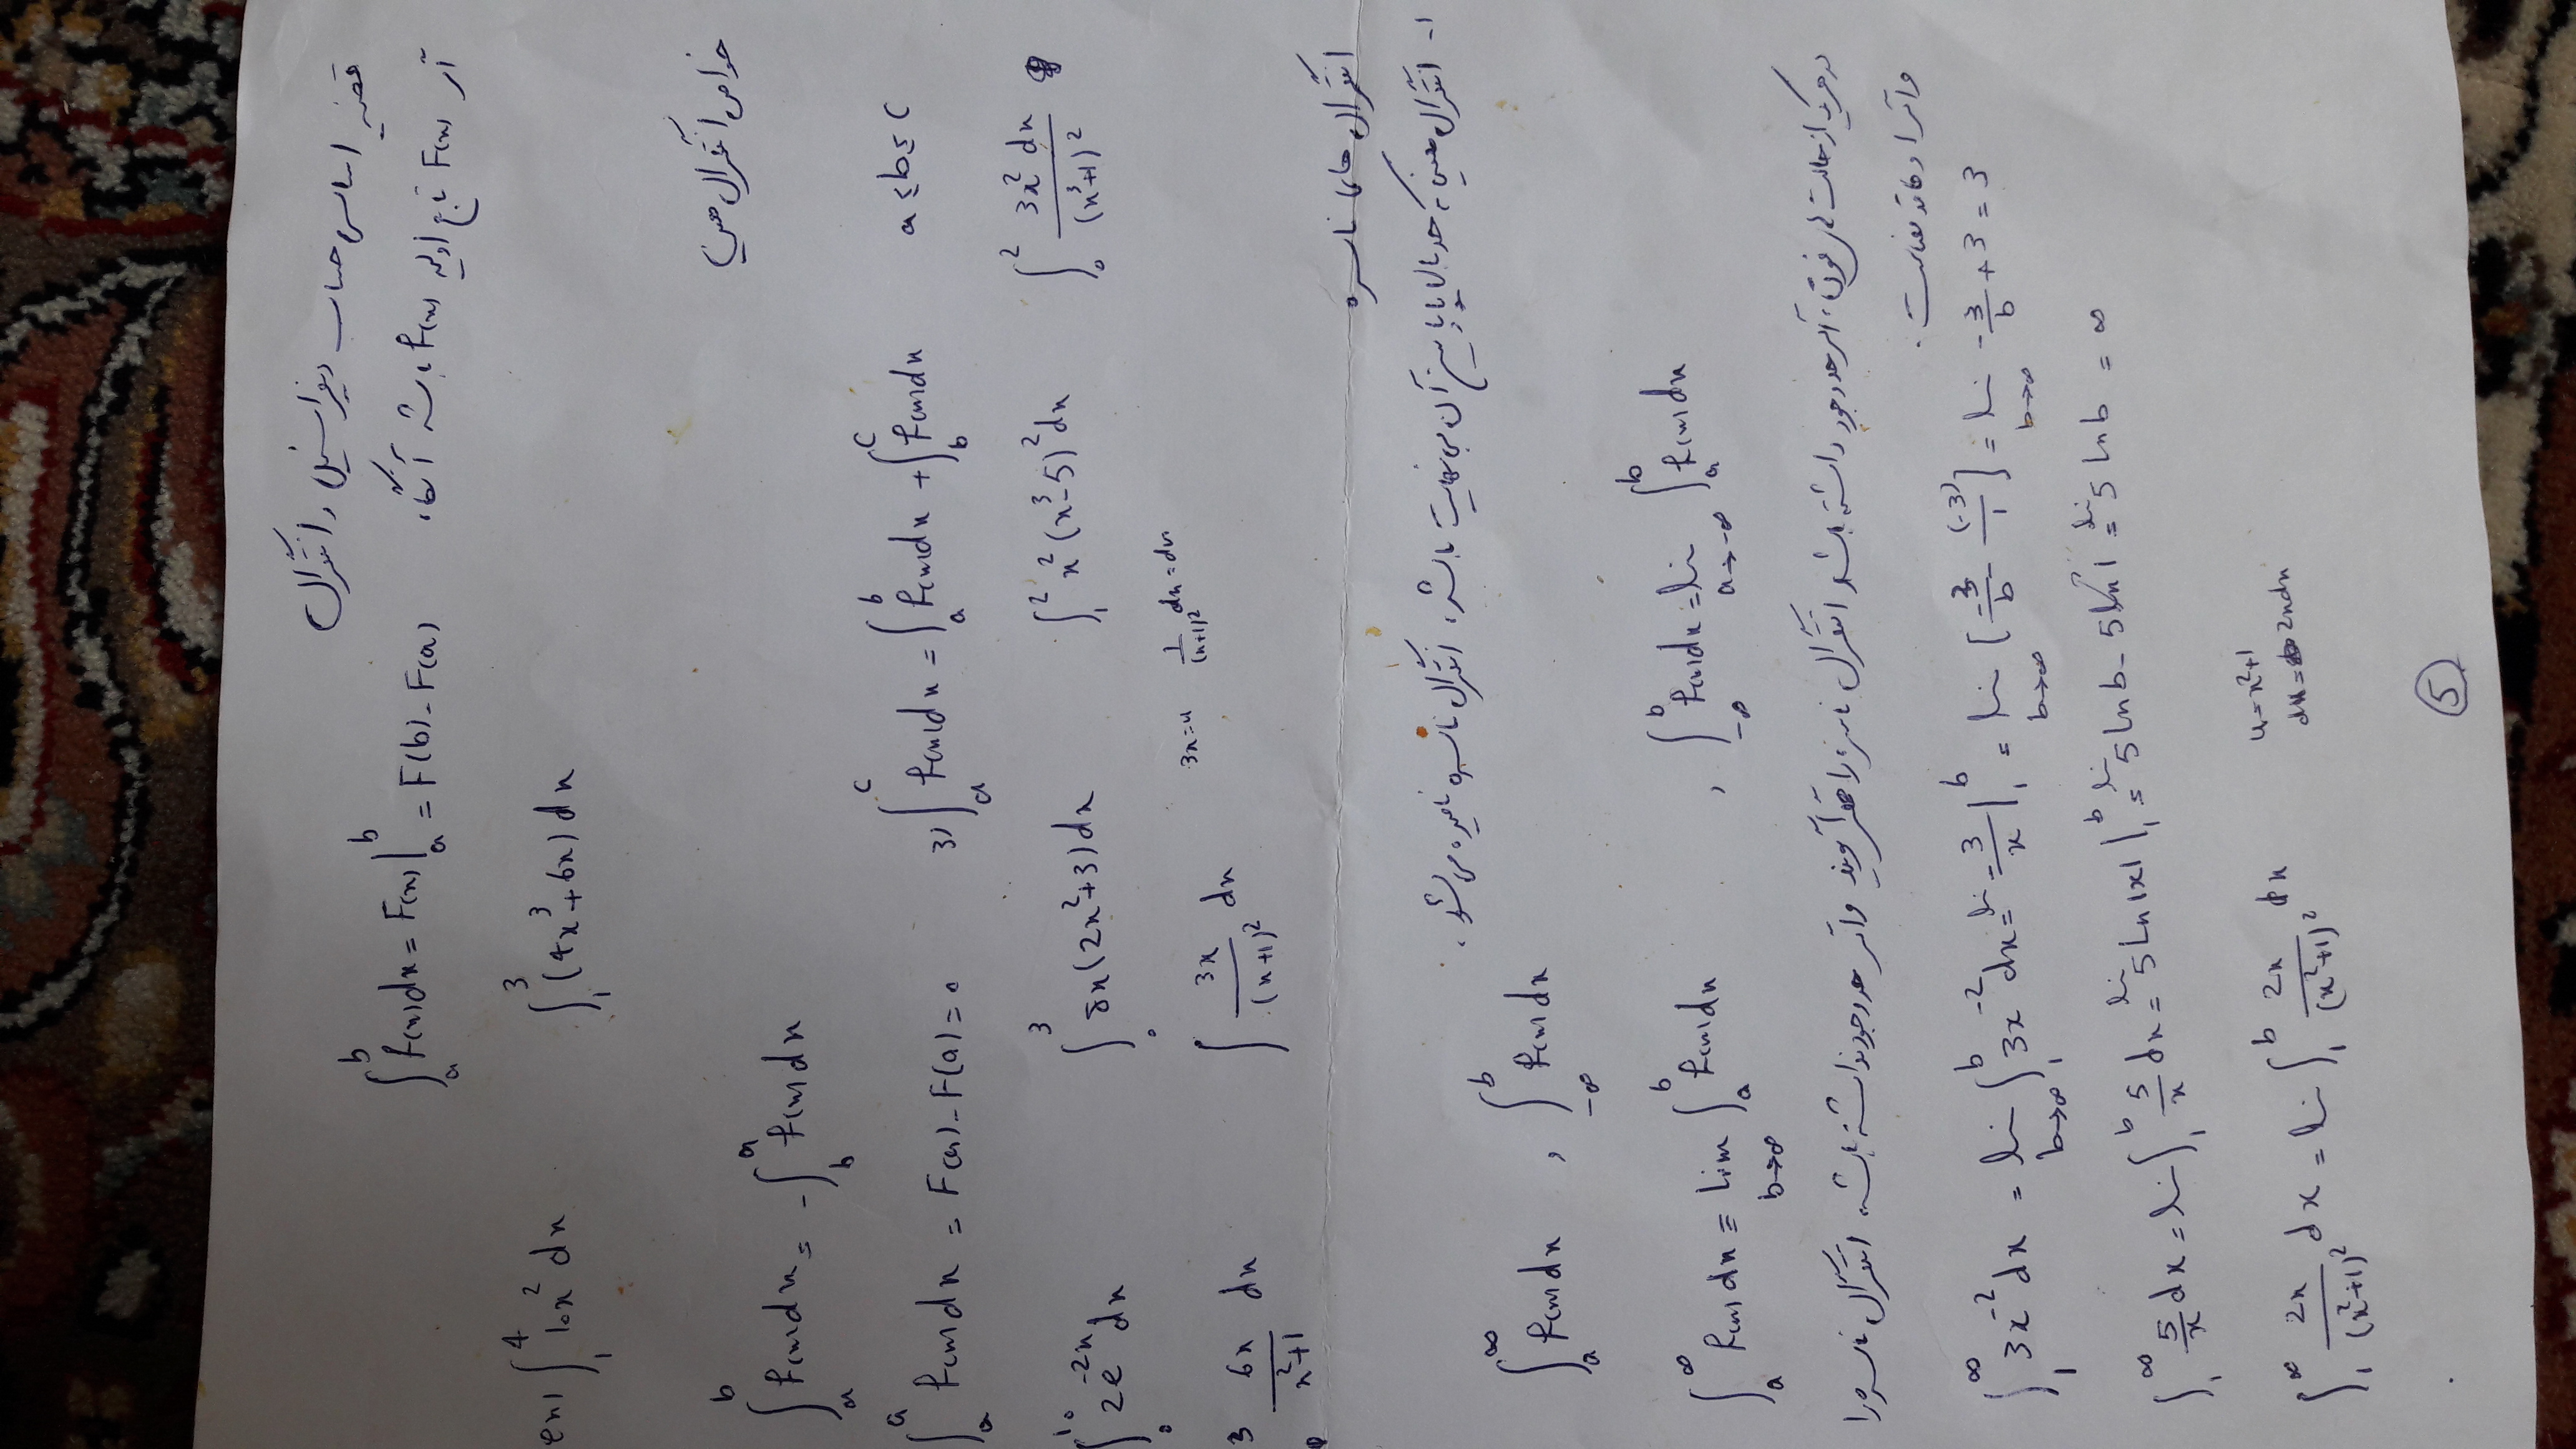 قضیه اساسی حساب دیفرانسیل و انتگرال
اگر F(x) تابع اولیه f(x) باشد آنگاه:
∫_a^b f(x)dx = F(x)|_a^b = F(b) - F(a)
ex1 ∫_1^4 10x^2 dx ∫_1^3 (4x^3+6x)dx
خواص انتگرال معین
∫_a^b f(x)dx = -∫_b^a f(x)dx
∫_a^a f(x)dx = F(a) - F(a) = 0 3) ∫_a^c f(x)dx = ∫_a^b f(x)dx + ∫_b^c f(x)dx a≤b≤c
∫_0^10 2e^-2x dx ∫_0^3 8x(2x^2+3)dx ∫_1^2 x^2(x^3-5)^2 dx ∫_0^2 3x^2dx/(x^3+1)^2
3 6x/(x^2+1) dx ∫ 3x/(x+1)^2 dx 3x=u 1/(x+1)^2 dx=dv
انتگرال های ناسره
1- انتگرال معینی که حد بالا یا پایین آن بی نهایت باشد، انتگرال ناسره نامیده می شود.
∫_a^∞ f(x)dx , ∫_-∞^b f(x)dx
∫_a^∞ f(x)dx = lim_{b→∞} ∫_a^b f(x)dx , ∫_-∞^b f(x)dx = lim_{a→-∞} ∫_a^b f(x)dx
در هر یک از حالت های فوق، اگر حد وجود داشته باشد انتگرال ناسره را همگرا گویند و اگر حد وجود نداشته باشد، انتگرال ناسره را
واگرا
∫_1^∞ 3x^-2 dx = lim_{b→∞} ∫_1^b 3x^-2 dx = lim -3/x|_1^b = lim_{b→∞} [-3/b - (-3)/1] = lim_{b→∞} -3/b + 3 = 3
∫_1^∞ 5/x dx = lim ∫_1^b 5/x dx = lim 5Ln|x||_1^b = lim 5lnb - 5ln1 = lim 5lnb = ∞
∫_1^∞ 2x/(x^2+1)^2 dx = lim ∫_1^b 2x/(x^2+1)^2 dx u=x^2+1
du=2xdx
5